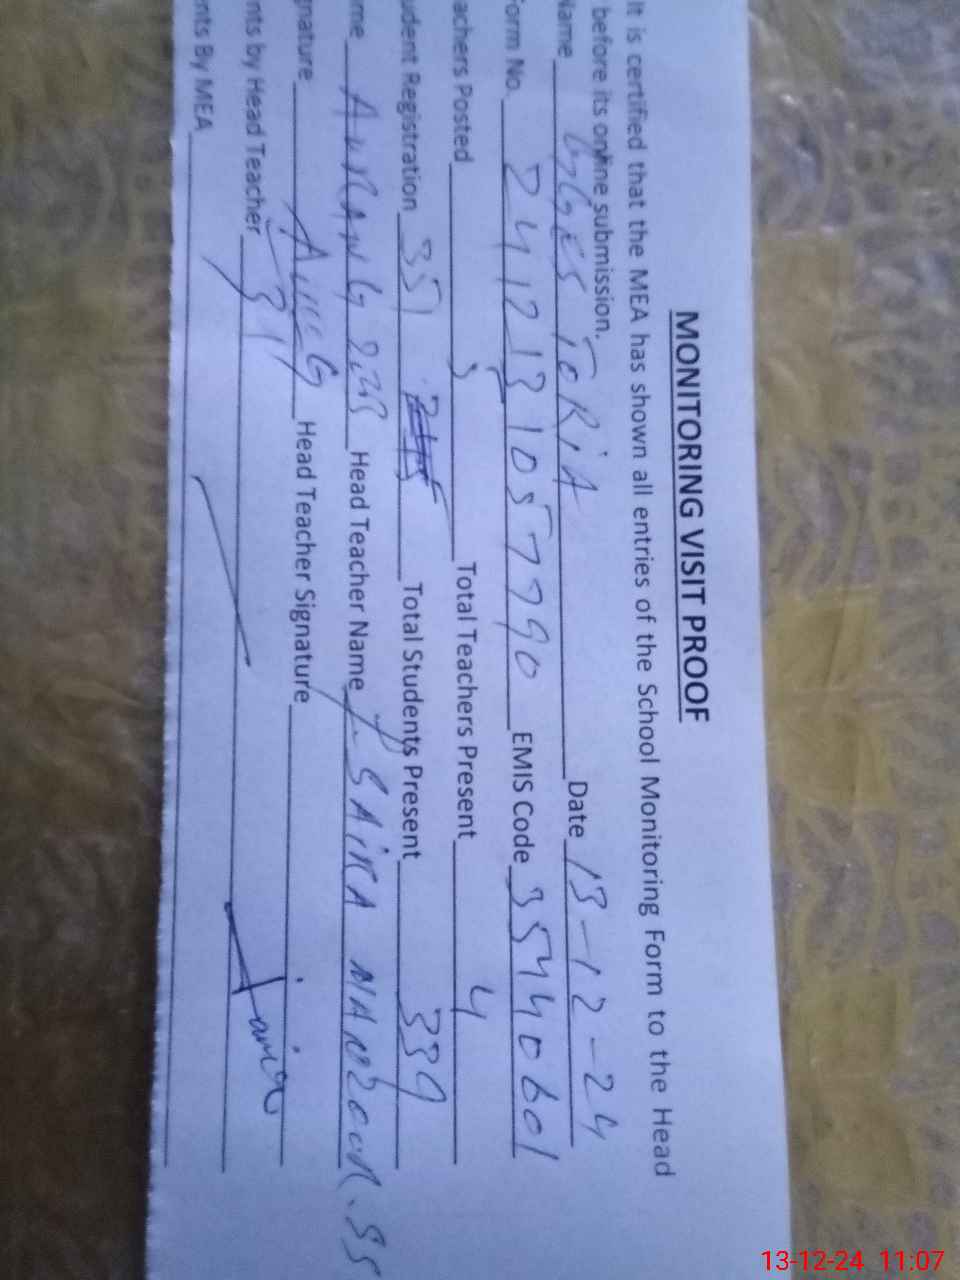 MONITORING VISIT PROOF
It is certified that the MEA has shown all entries of the School Monitoring Form to the Head
before its online submission.
Name GGES TORIA Date 13-12-24
Form No. 241213105790 EMIS Code 35440601
achers Posted 5 Total Teachers Present 4
udent Registration 351 Total Students Present 339
me AURANGZEB Head Teacher Name SAIRA MANZOOR. SS
gnature Head Teacher Signature Saira
nts by Head Teacher
nts By MEA
13-12-24 11:07